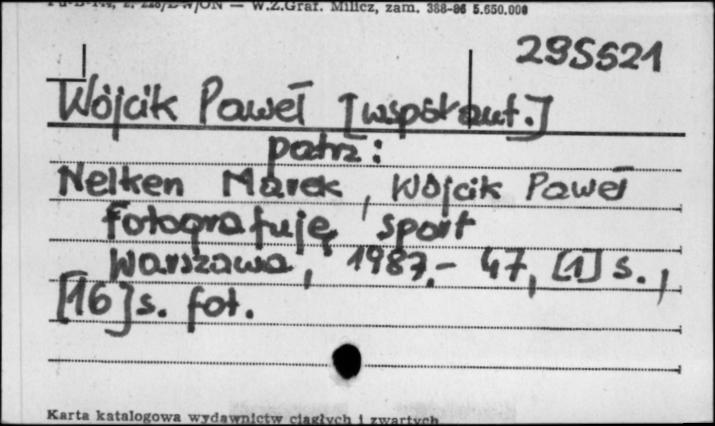 W.Z.Graf. Milicz, zam. 388-86 5.650.000
295521
Wójcik Paweł [współaut.]
patrz:
Nelken Marek, Wójcik Paweł
Fotografuję sport
Warszawa, 1987.- 47, [1] s.,
[16] s. fot.
Karta katalogowa wydawnictw ciągłych i zwartych